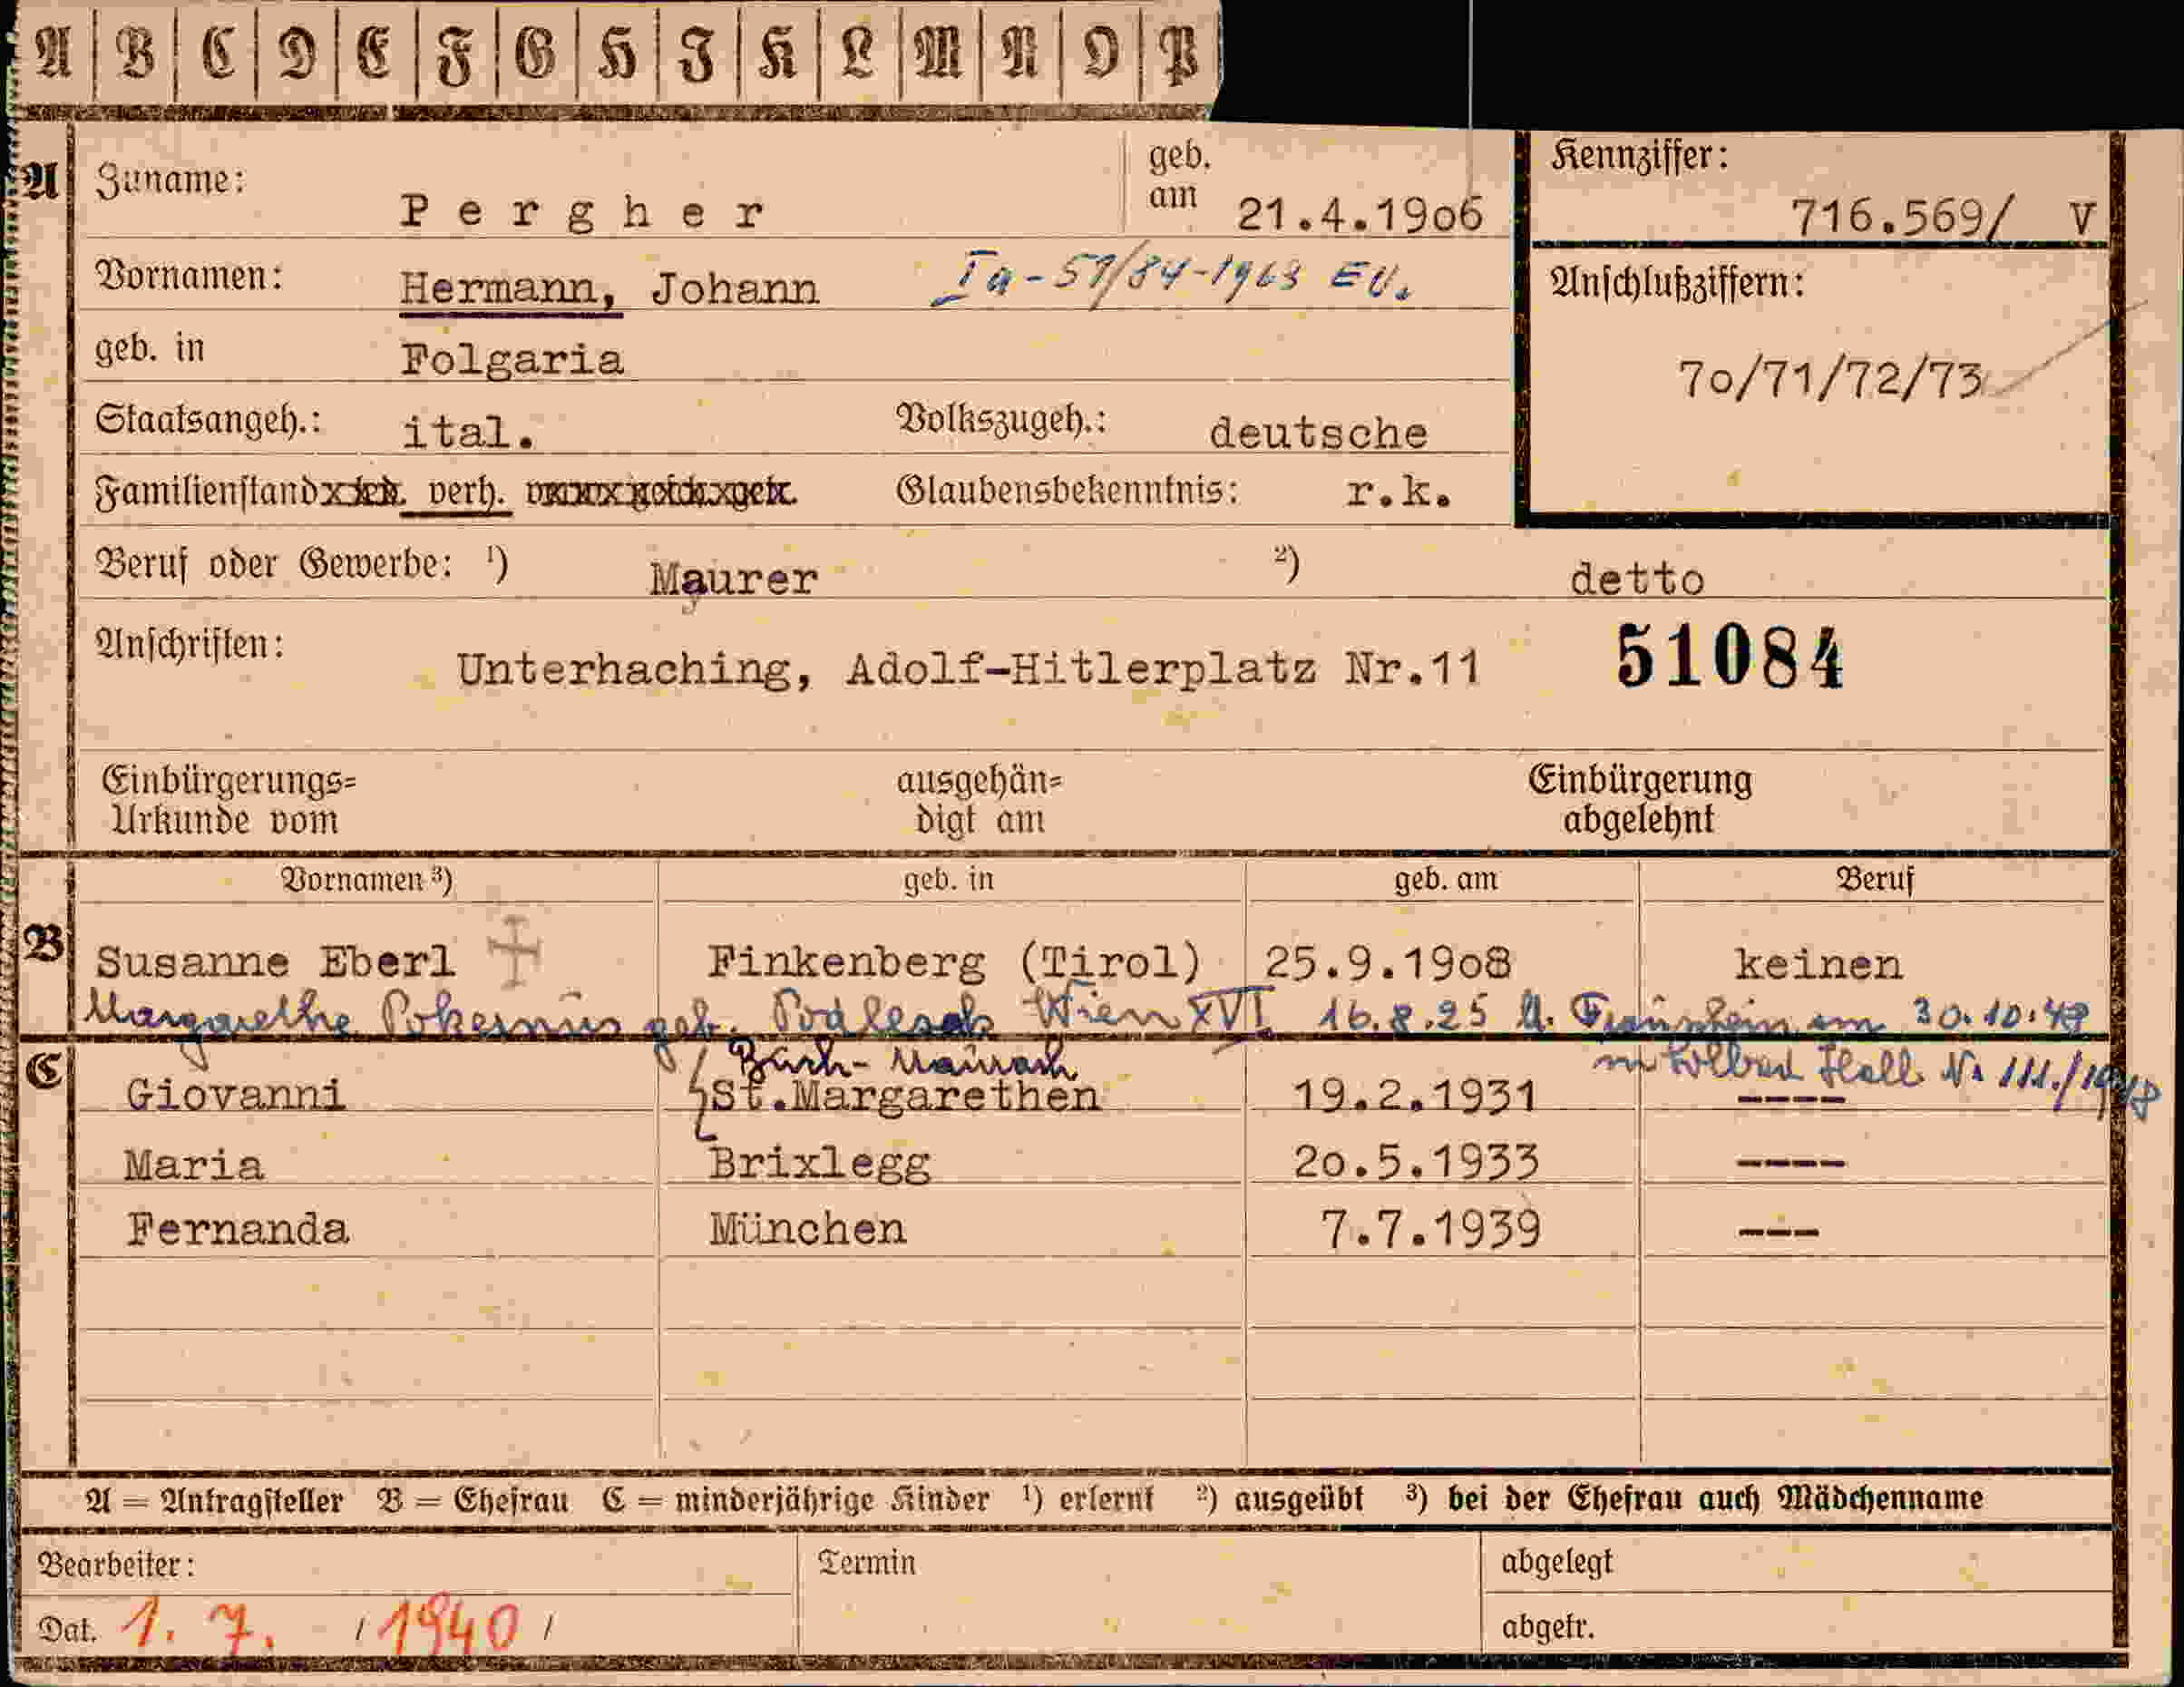 A B C D E F G H I K L M N O P
A Zuname: P e r g h e r geb. am 21.4.19o6 Kennziffer: 716.569/ V
Vornamen: Hermann, Johann Ia-57/84-1963 EU.
Anschlußziffern: 7o/71/72/73
geb. in Folgaria
Staatsangeh.: ital. Volkszugeh.: deutsche
Familienstand verh. Glaubensbekenntnis: r.k.
Beruf oder Gewerbe: ¹) Maurer ²) detto
Anschriften: Unterhaching, Adolf-Hitlerplatz Nr.11 51084
Einbürgerungs= ausgehän= Einbürgerung
Urkunde vom digt am abgelehnt
Vornamen ³) geb. in geb. am Beruf
B Susanne Eberl Finkenberg (Tirol) 25.9.19o8 keinen
Margarethe geb. Wien XVI 16.8.25 am 30.10.48
C Buch- Maurach Hall Nr 111./1948
Giovanni St.Margarethen 19.2.1931 ----
Maria Brixlegg 2o.5.1933 ----
Fernanda München 7.7.1939 ---
A = Antragsteller B = Ehefrau C = minderjährige Kinder ¹) erlernt ²) ausgeübt ³) bei der Ehefrau auch Mädchenname
Bearbeiter: Termin abgelegt
Dat. 1. 7. / 1940 / abgetr.